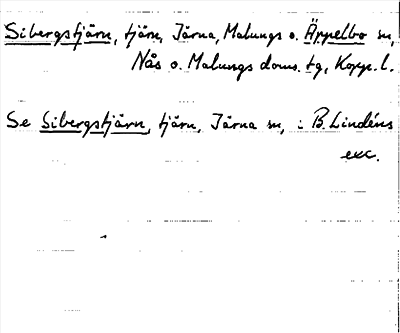 Sibergstjärn, tjärn, Järna, Malungs o. Äppelbo sn,
Nås o. Malungs doms. tg, Kopp. l.
Se Sibergstjärn, tjärn, Järna sn, i B. Lindéns
exc.